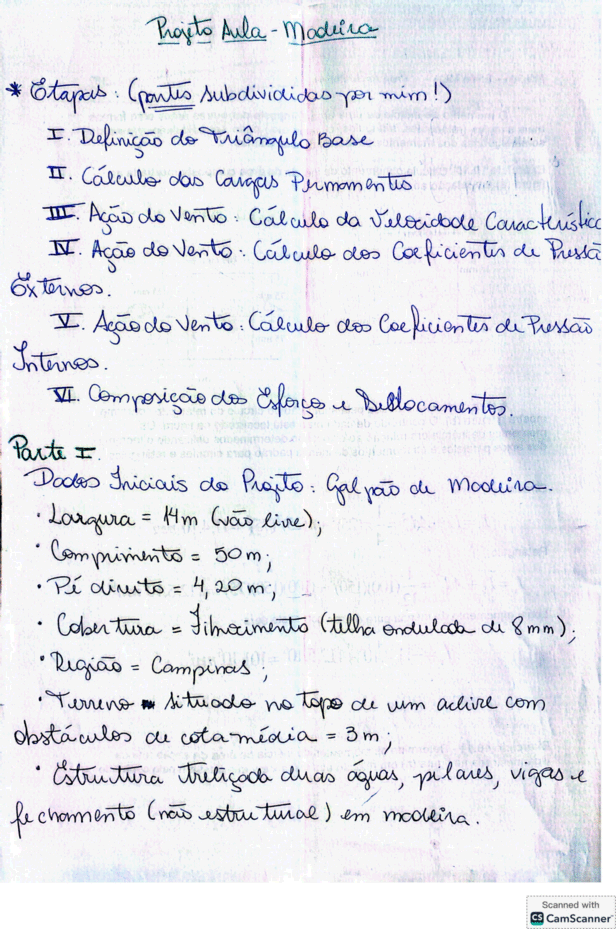 Projeto Aula - Madeira
* Etapas: (partes subdivididas por mim!)
I. Definição do Triângulo Base
II. Cálculo das Cargas Permanentes
III. Ação do Vento: Cálculo da Velocidade Característica
IV. Ação do Vento: Cálculo dos Coeficientes de Pressã
Externos.
V. Ação do Vento: Cálculo dos Coeficientes de Pressão
Internos.
VI. Composição dos Esforços e Deslocamentos.
Parte I.
Dados Iniciais do Projeto: Galpão de Madeira.
· Largura = 14m (vão livre);
· Comprimento = 50m;
· Pé direito = 4,20m;
· Cobertura = Fibrocimento (telha ondulada de 8mm);
· Região = Campinas;
· Terreno situado no topo de um aclive com
obstáculos de cota média = 3m;
· Estrutura treliçada duas águas, pilares, vigas e
fechamento (não estrutural) em madeira.
Scanned with
CS CamScanner